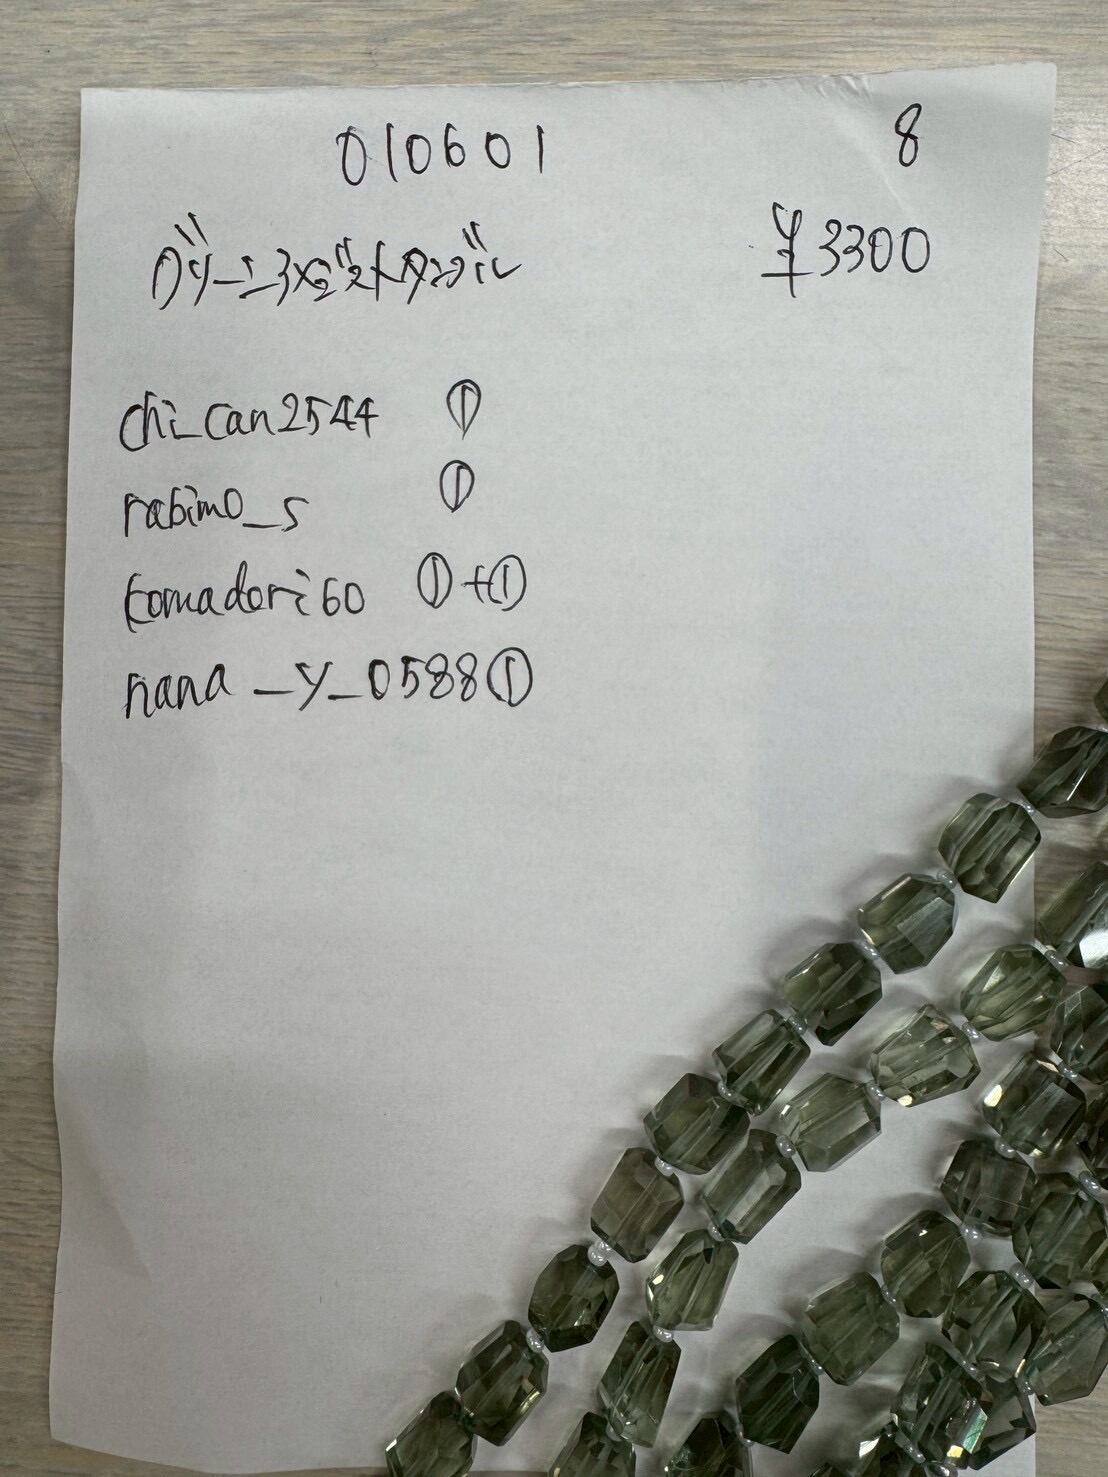 010601 8
グリーンアメジストタンブル ¥3300
chi_can2544 ①
rabimo_s ①
komadori60 ①+①
nana_y_0588 ①